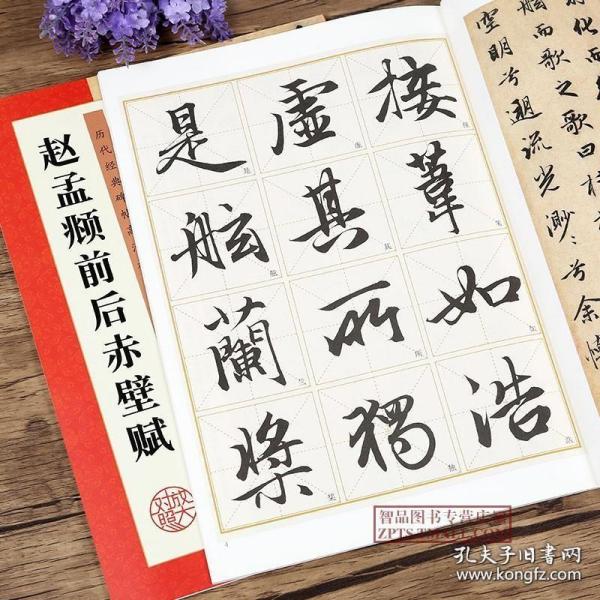 赵孟頫前后赤壁赋
历代经典碑帖高清
放大
对照
接
苇
如
浩
虚
其
所
独
是
舷
兰
桨
接 葦 如 浩
虛 其 所 獨
是 舷 蘭 槳
空明兮遡流光渺渺兮余懷
舷而歌之歌曰桂
化而
4
智品图书专营店
ZPTS.TMALL.COM
孔夫子旧书网
www.kongfz.com